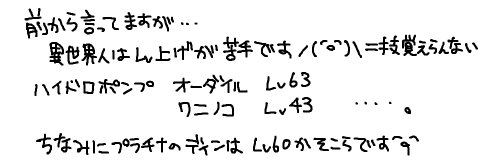 前から言ってますが…
異世界人はLv上げが苦手です/(^o^)\=技覚えらんない
ハイドロポンプ オーダイル Lv63
ワニノコ Lv43 ‥‥。
ちなみにプラチナのディンはLv60かそこらです^q^